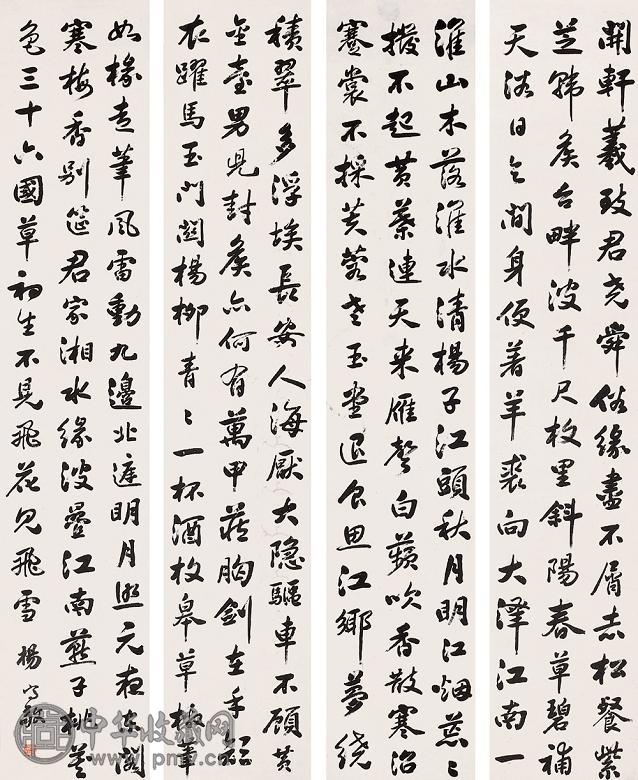 開軒羲致君堯舜俗緣盡不屑赤松餐紫
芝韓矦台畔波千尺枚里斜陽春草碧補
天浴日乞閒身便著羊裘向大澤江南一
淮山木落淮水清楊子江頭秋月明江烟蒸〻
撥不起黃蘆連天来雁聲白蘋吹香散寒沼
蹇裳不採芙蓉老玉堂退食思江鄉夢繞
積翠多浮埃長安人海厭大隱驅車不顧黃
金臺男兒封矦亦何有萬甲藏胸劍在手短
衣躍馬玉門關楊柳青〻一杯酒枚皋草檄筆
如椽走筆風雷動九邊北庭明月照元夜東閣
寒梅香別筵君家湘水綠波疊江南燕子桃葉
色三十六國草初生不見飛花見飛雪 楊守敬
中华收藏网